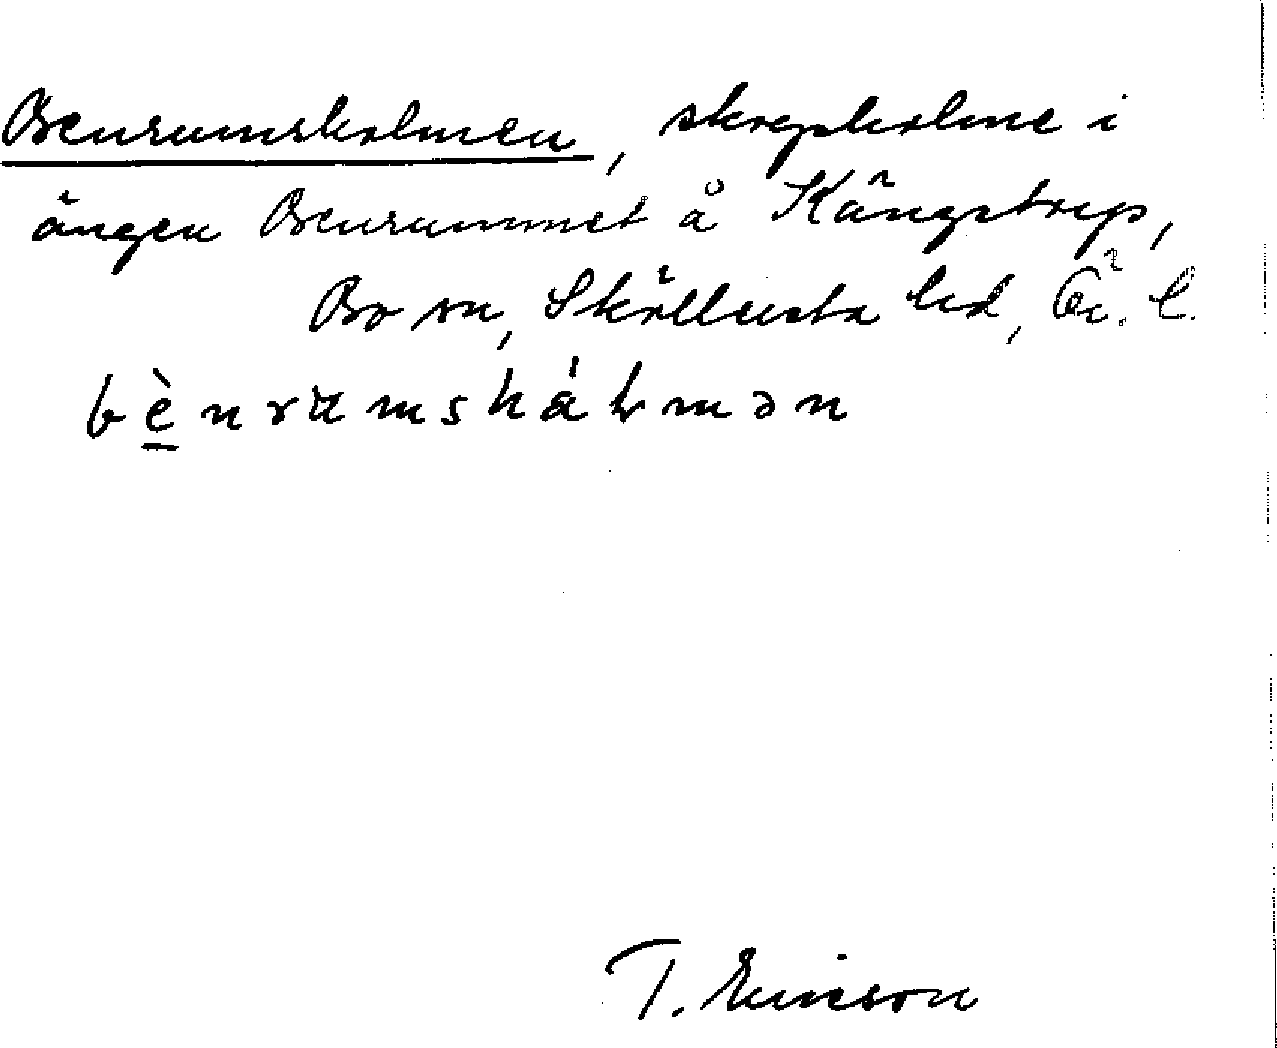 Benrumsholmen, skogsholme i
ängen Benrummet å Kängstrop,
Bo sn, Sköllersta hd, Ör. l.
bè̱nrumshålmən
T. Ericson